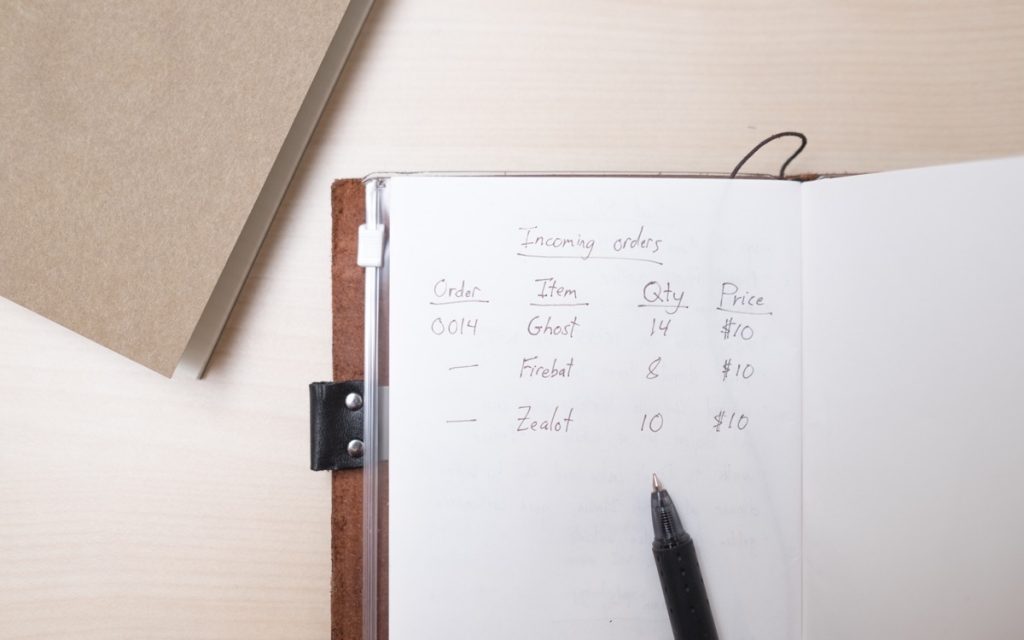 Incoming orders
Order Item Qty Price
0014 Ghost 14 $10
— Firebat 8 $10
— Zealot 10 $10